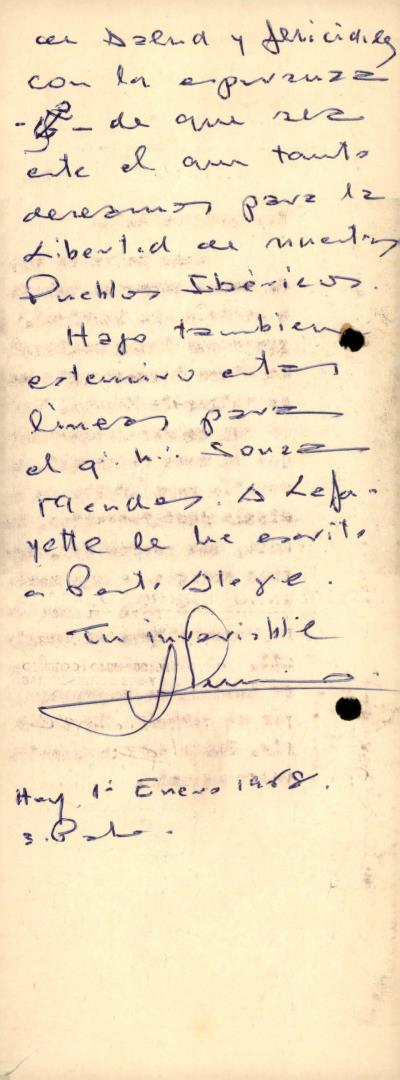 en Salud y felicidad
con la esperanza
- de que sea
este el que tanto
deseamos para la
Libertad de nuestros
Pueblos Ibéricos.
Hago tambien
estensivo estas
lineas para
el q. h. Souza
Mendes. A Lefa-
yette le he escrito
a Porto Alegre.
Tu invariable
Hoy 1º Enero 1968.
S. Pablo.